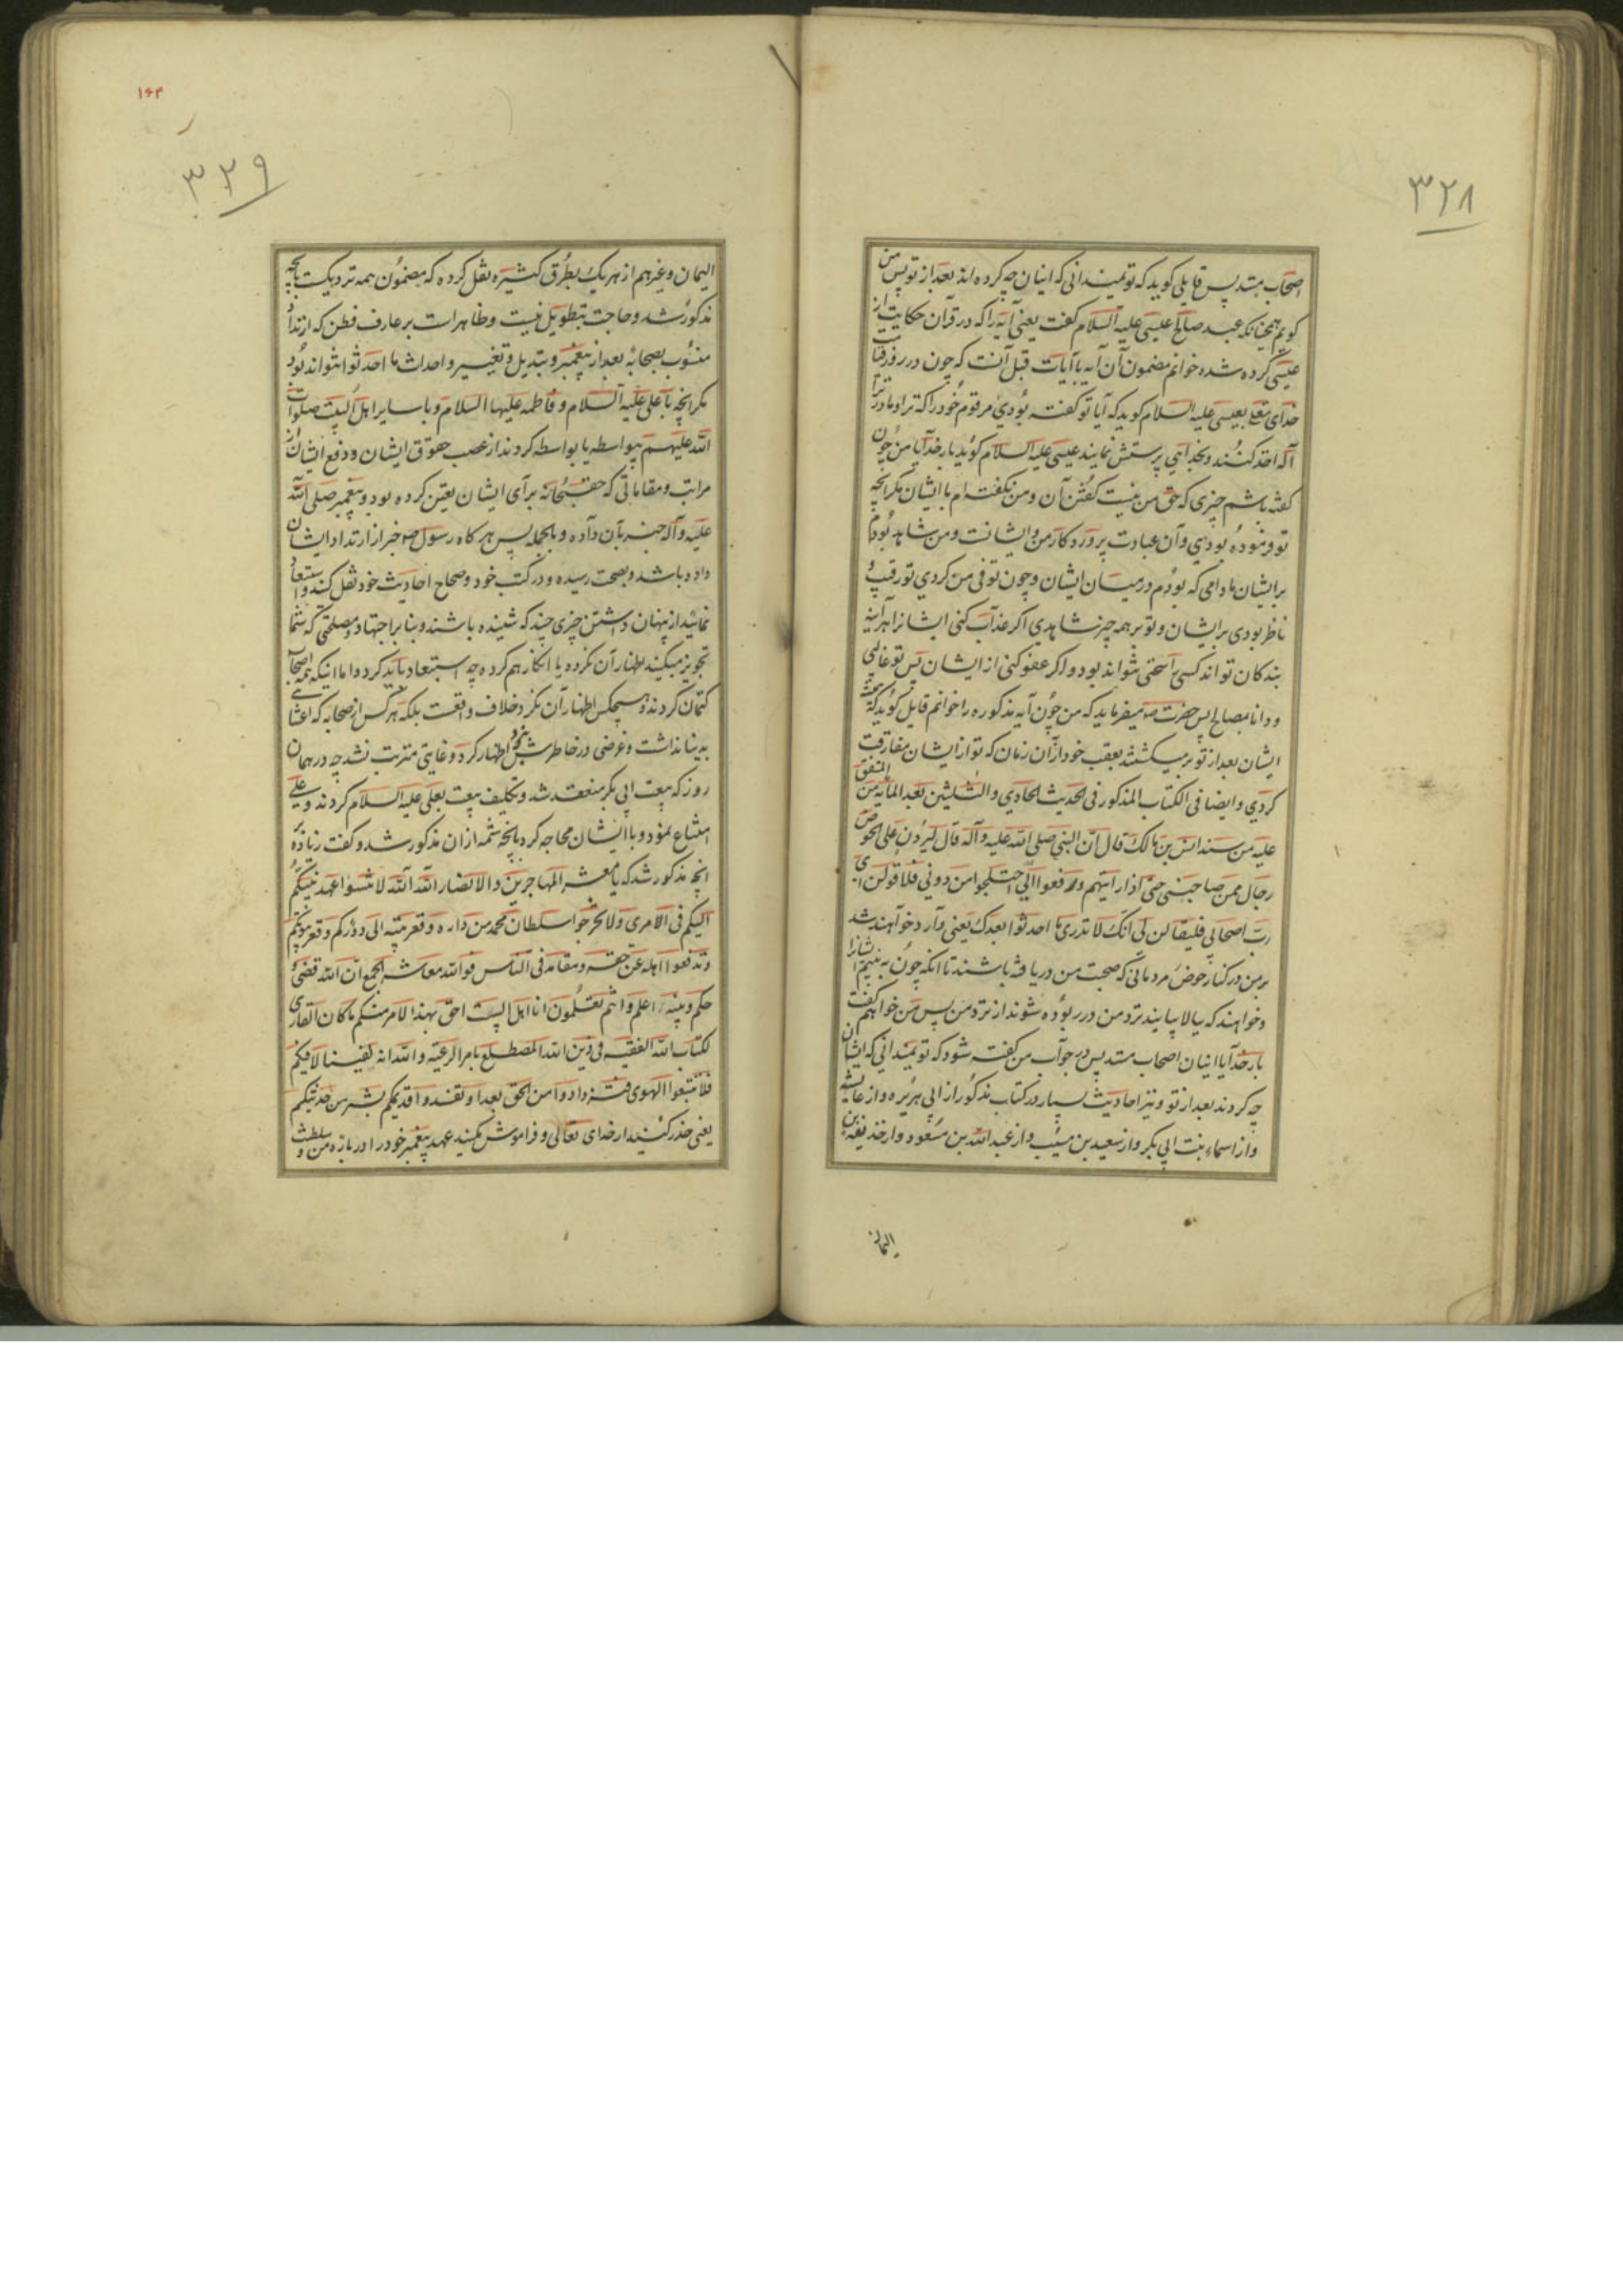 ۳۲۸
اصحاب منند پس قایلی کوید که تو نمیدانی که اینان چه کرده اند بعد از تو پس من
کویم همچنانکه عبد صالح عیسی علیه السلام کفت یعنی آیه را که در قرآن حکایت از
عیسی کرده شده خوانم مضمون آن آیه با آیات قبل آنست که چون در روز قیامت
خدای تعالی بعیسی علیه السلام کوید که آیا تو کفته بودی مر قوم خود را که ترا و مادر ترا
آله اخذ کنند و بخدایی پرستش نمایند عیسی علیه السلام کوید بار خدایا من چون
کفته باشم چیزی که حق من نیست کفتن آن و من نکفته ام با ایشان مکر انچه
تو فرموده بودی و آن عبادت پروردکار من و ایشانست و من شاهد بودم
بر ایشان مادامی که بودم در میان ایشان و چون توفی من کردی تو رقیب و
ناظر بودی بر ایشان و تو بر همه چیز شاهدی اکر عذاب کنی ایشانرا هرآینه
بندکان تواند کسی را سخنی نتواند بود و اکر عفو کنی از ایشان پس تو غالبی
و دانا بمصالح پس حضرت ص میفرماید که من چون آیه مذکوره را خوانم قایل کوید که همیشه
ایشان بعد از تو بر میکشتند بعقب خود از آن زمان که تو از ایشان مفارقت
کردی و ایضا فی الکتاب المذکور فی الحدیث الحادی و الثلثین بعد المایه من المتفق
علیه من مسند انس بن مالک قال ان النبی صلی الله علیه و آله قال لیردن علی الحوض
رجال ممن صاحبنی حتی اذا رایتهم و رفعوا الی اختلجوا من دونی فلاقولن ای
رب اصحابی فلیقالن لی انک لا تدری ما احدثوا بعدک یعنی وارد خواهند شد
بر من در کنار حوض مردمانی که صحبت من دریافته باشند تا انکه چون به بینم ایشانرا
و خواهند که بالا بیایند نزد من در ربوده شوند از نزد من پس من خواهم کفت
بار خدایا اینان اصحاب منند پس در جواب من کفته شود که تو نمیدانی که ایشان
چه کردند بعد از تو و نیز احادیث بسیار در کتاب مذکور از ابی هریره و از عایشه
و از اسماء بنت ابی بکر و از سعید بن مسیب و از عبد الله بن مسعود و از حذیفة بن
الیمان
۱۶۴
۳۲۹
الیمان و غیرهم از هر یک بطرق کثیره نقل کرده که مضمون همه نزدیکست بانچه
مذکور شد و حاجت بتطویل نیست و ظاهر است بر عارف فطن که ارتداد
منسوب بصحابه بعد از پیغمبر و تبدیل و تغییر و احداث ما احدثوا نتواند بود
مکر انچه با علی علیه السلام و فاطمه علیها السلام و با سایر اهل البیت صلوات
الله علیهم بیواسطه یا بواسطه کردند از غصب حقوق ایشان و دفع ایشان از
مراتب و مقاماتی که حق سبحانه برای ایشان تعین کرده بود و پیغمبر صلی الله
علیه و آله خبر بآن داده و بالجمله پس هر کاه رسول ص خبر از ارتداد ایشان
داده باشد و بصحت رسیده و در کتب خود و صحاح احادیث خود نقل کنند و استبعاد
نمائید از پنهان داشتن چیزی چند که شنیده باشند و بنا بر اجتهاد و مصلحتی که شما
تجویز میکنید اظهار آن نکرده یا انکار هم کرده چه استبعاد باید کرد و اما اینکه همه اصحاب
کتمان کردند و هیچکس اظهار آن نکرد خلاف واقعست بلکه هر کس از صحابه که اعتنا
به بنا نداشت و غرضی در خاطرش نبود اظهار کرد و غایتی مترتب نشد چه در همان
روز که بیعت ابی بکر منعقد شد و تکلیف بیعت بعلی علیه السلام کردند و علی
امتناع نمود و با ایشان محاجه کرد بانچه شمه از ان مذکور شد و کفت زیاده بر
انچه مذکور شد که یا معشر المهاجرین و الانصار الله الله لا تنسوا عهد نبیکم
الیکم فی الامری و لا تخرجوا سلطان محمد من داره و قعر بیته الی دورکم و قعر بیوتکم
و تدفعوا اهله عن حقه و مقامه فی الناس فو الله معاشر الجمع ان الله قضی و
حکم و نبیه اعلم و انتم تعلمون انا اهل البیت احق بهذا الامر منکم ما کان القاری
لکتاب الله الفقیه فی دین الله المضطلع بامر الرعیه و الله انه لفینا لا فیکم
فلا تتبعوا الهوی فتزدادوا من الحق بعدا و تفسدوا قدیمکم بشر من حدیثکم
یعنی حذر کنید از خدای تعالی و فراموش نکنید عهد پیغمبر خود را در باره من و سلطنت